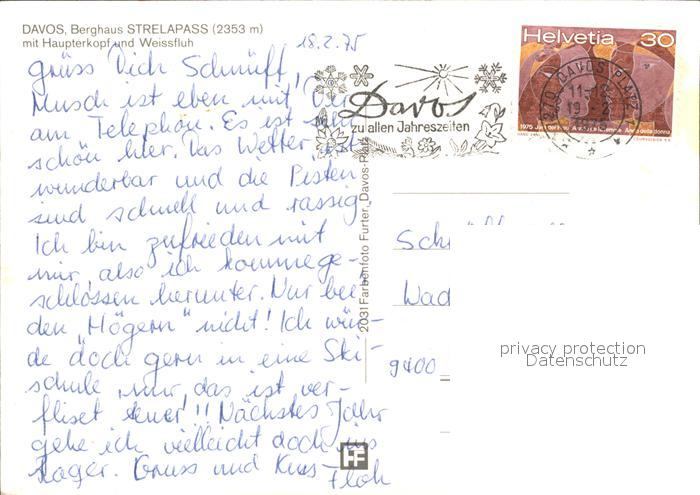 DAVOS, Berghaus STRELAPASS (2353 m)
mit Haupterkopf und Weissfluh
18.2.75
grüss Dich Schnüff,
Musch ist eben mit Dir
am Telephon. Es ist sehr
schön hier. Das Wetter ist
wunderbar und die Pisten
sind schnell und rassig.
Ich bin zufrieden mit
mir, also ich komme ge-
schlossen herunter. Nur bei
den "Högern" nicht! Ich wür-
de doch gern in eine Ski-
schule, nur, das ist ver-
flixt teuer!! Nächstes Jahr
gehe ich vielleicht doch ins
Lager. Gruss und Kuss
Floh
2031 Farbenfoto Furter, Davos-Platz
FF
Davos
zu allen Jahreszeiten
DAVOS PLATZ
Helvetia 30
1975 Jahr der Frau
Wad
9400
privacy protection
Datenschutz